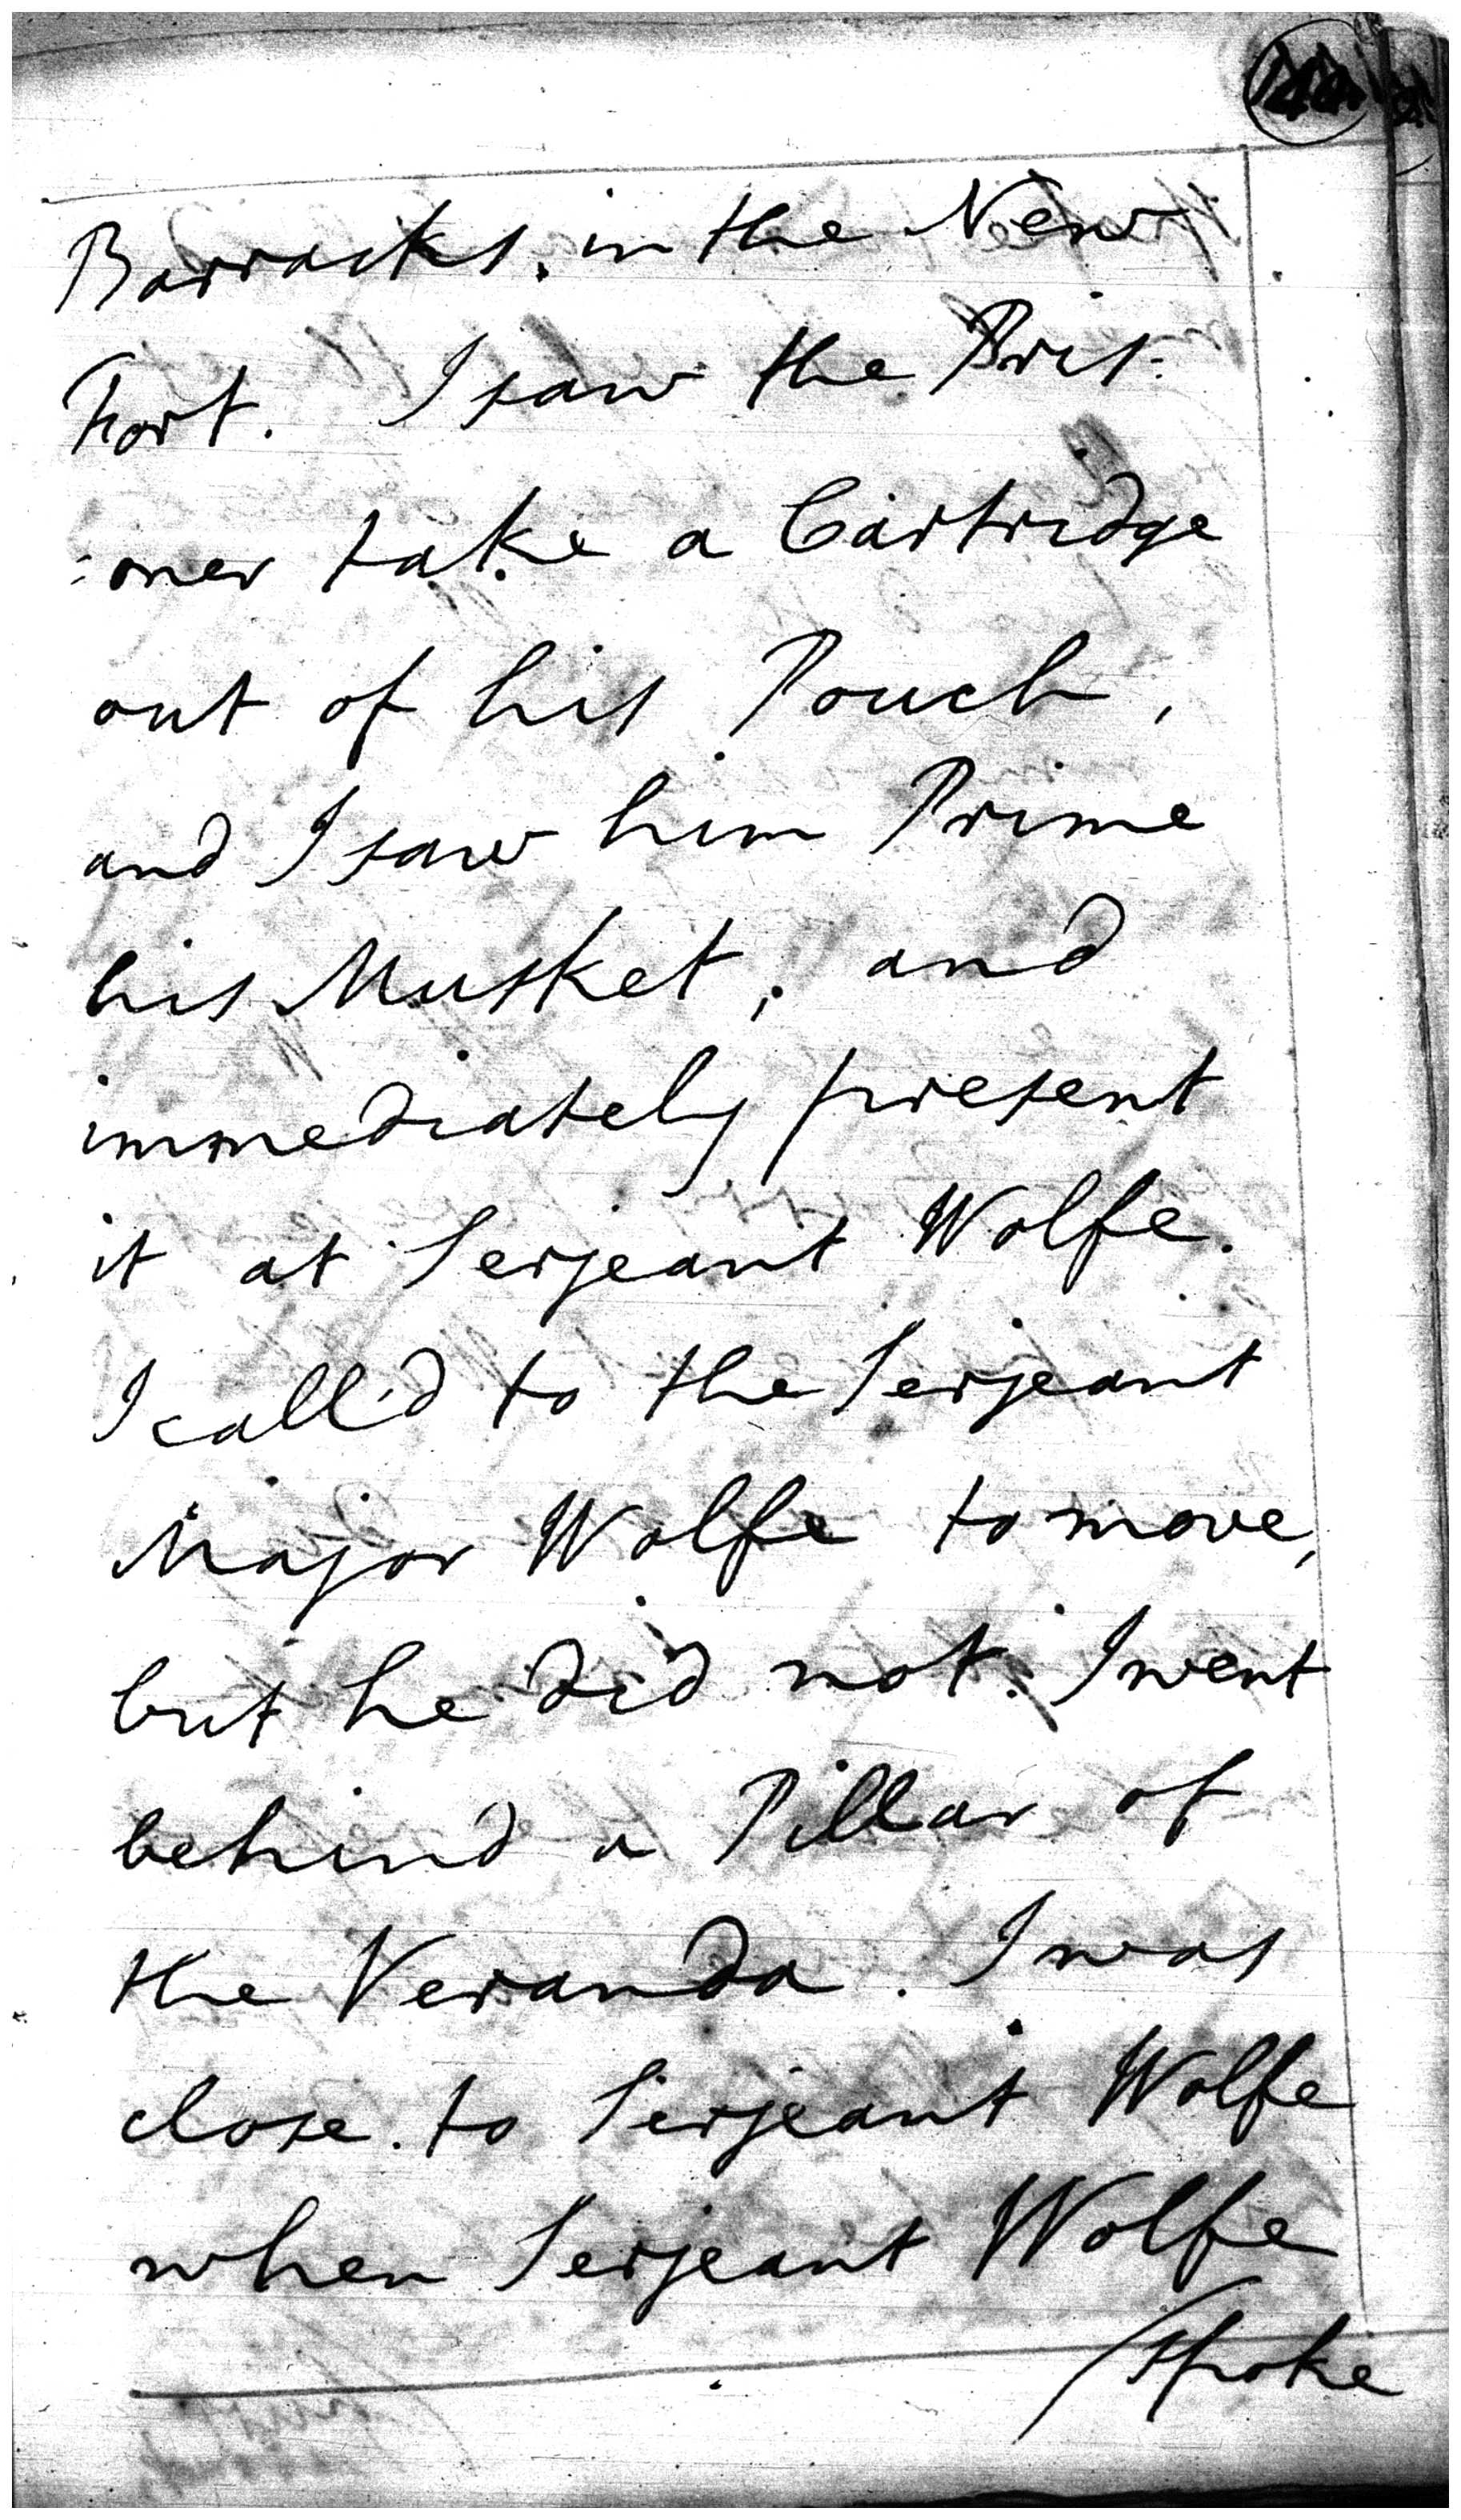 Barracks. in the New
Fort. I saw the Pris-
:oner take a Cartridge
out of his Pouch,
and I saw him Prime
his Musket, and
immediately present
it at Serjeant Wolfe.
I call'd to the Serjeant
Major Wolfe to move,
but he did not. I went
behind a Pillar of
the Veranda. I was
close to Serjeant Wolfe
when Serjeant Wolfe
/Spoke